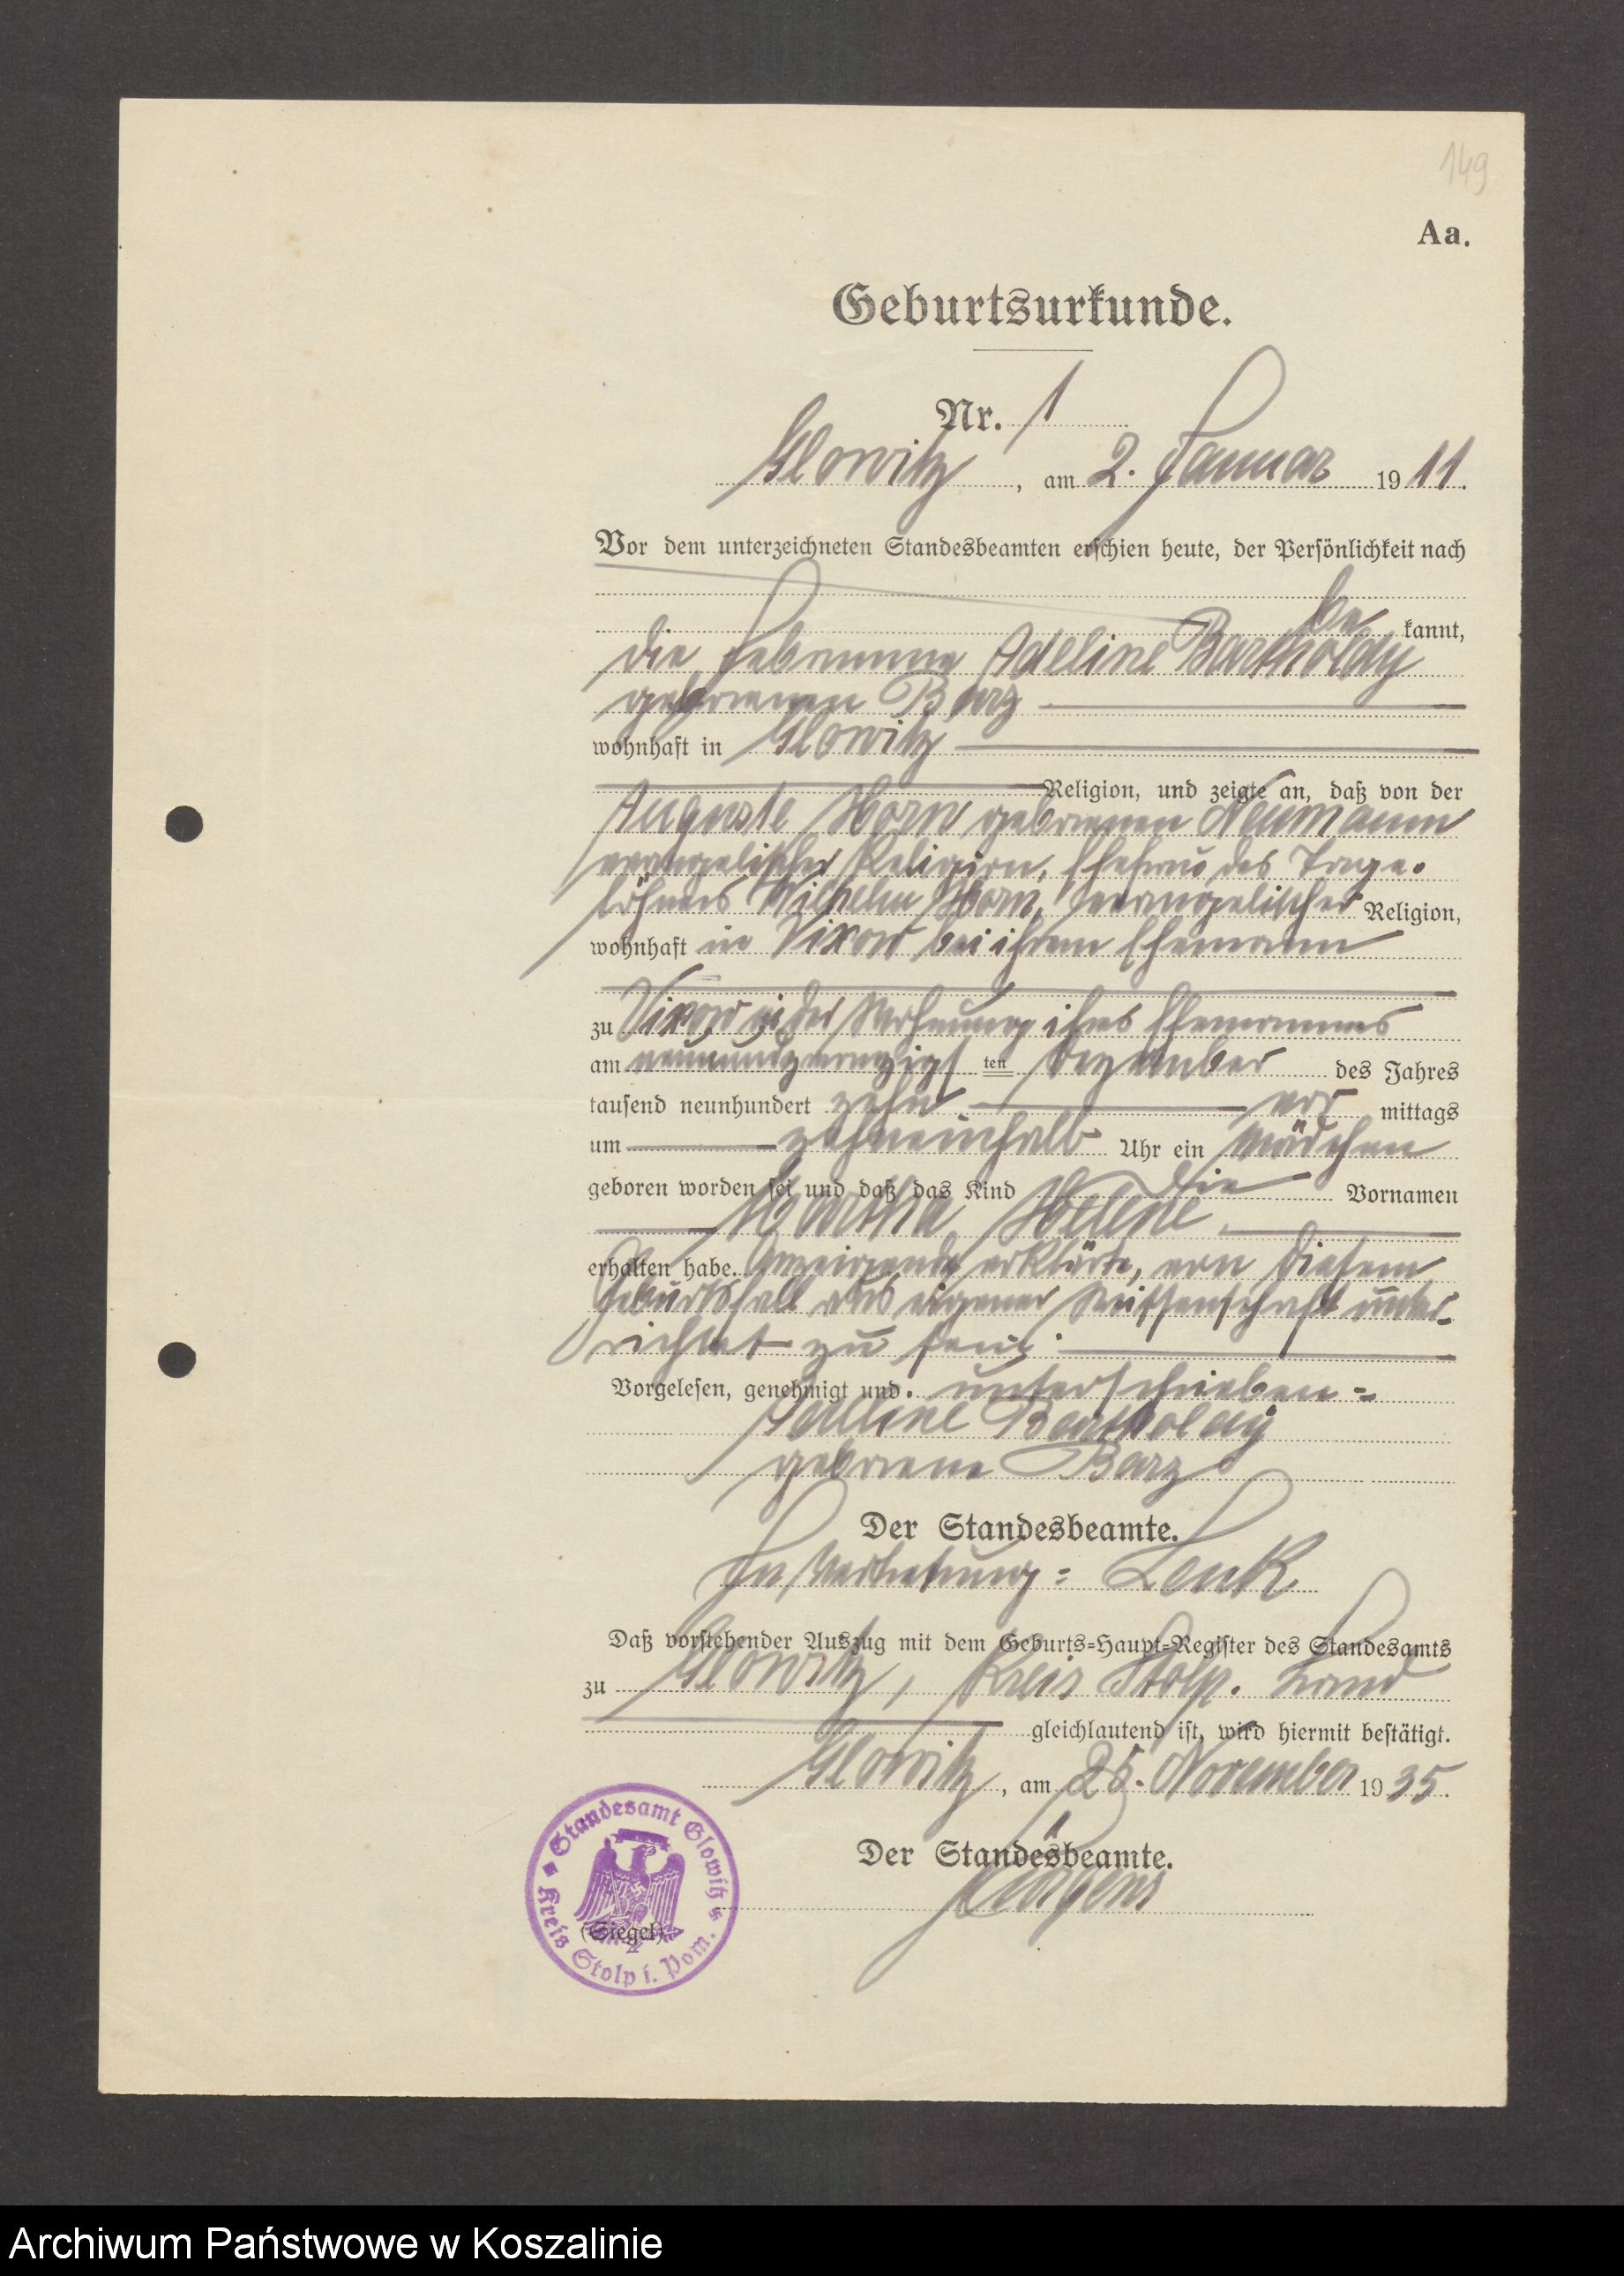 149
Aa.
Geburtsurkunde.
Nr. 1
Glowitz, am 2. Januar 1911.
Vor dem unterzeichneten Standesbeamten erschien heute, der Persönlichkeit nach
be kannt,
die Hebamme Adeline Bartholdy
geborenen Barz
wohnhaft in Glowitz
Religion, und zeigte an, daß von der
Auguste Horn geborenen Neumann
evangelischer Religion, Ehefrau des Tage-
löhners Wilhelm Horn, evangelischer Religion,
wohnhaft in Vixow bei ihrem Ehemann
zu Vixow in der Wohnung ihres Ehemannes
am neunundzwanzigs ten Dezember des Jahres
tausend neunhundert zehn vor mittags
um zehneinhalb Uhr ein Mädchen
geboren worden sei und daß das Kind die Vornamen
Martha Helene
erhalten habe. Anzeigende erklärte, von diesem
Geburtsfall aus eigener Wissenschaft unter-
richtet zu sein.
Vorgelesen, genehmigt und unterschrieben =
Adeline Bartholdy
geborene Barz
Der Standesbeamte.
In Vertretung = Lenk
Daß vorstehender Auszug mit dem Geburts-Haupt-Register des Standesamts
zu Glowitz, Kreis Stolp. Land
gleichlautend ist, wird hiermit bestätigt.
Glowitz, am 25. November 1935.
Der Standesbeamte.
(Siegel)
Standesamt Glowitz
Kreis Stolp i. Pom.
Archiwum Państwowe w Koszalinie